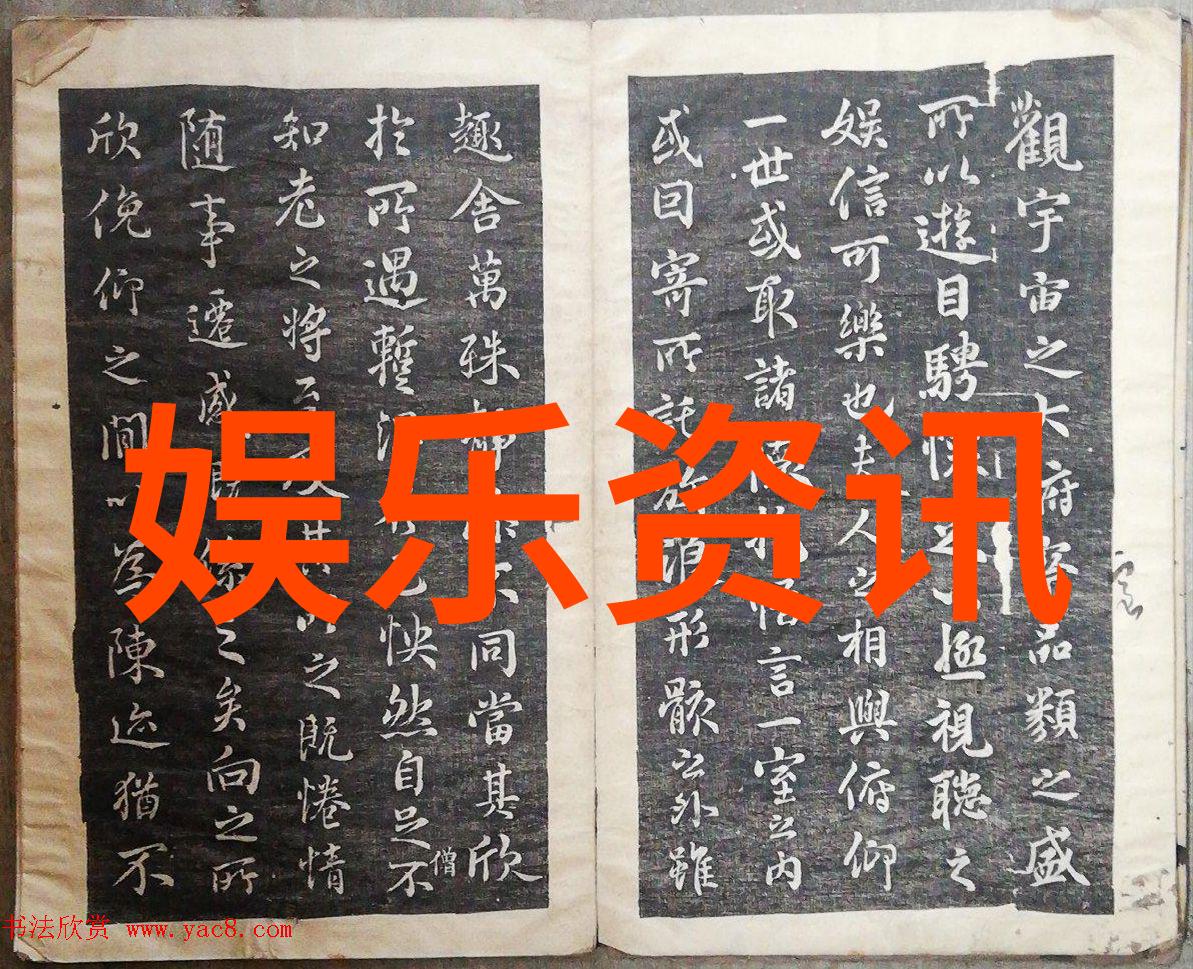 觀宇宙之大府察品類之盛
所以遊目騁懷極視聽之
娛信可樂也夫人之相與俯仰
一世或取諸懷悟言一室之內
或因寄所託放浪形骸之外雖
趣舍萬殊不同當其欣
於所遇暫得己怏然自足不
僧
知老之將至及其之既惓情
隨事遷感係之矣向之所
欣俛仰之間以為陳迹猶不
娱乐资讯
书法欣赏 www.yac8.com